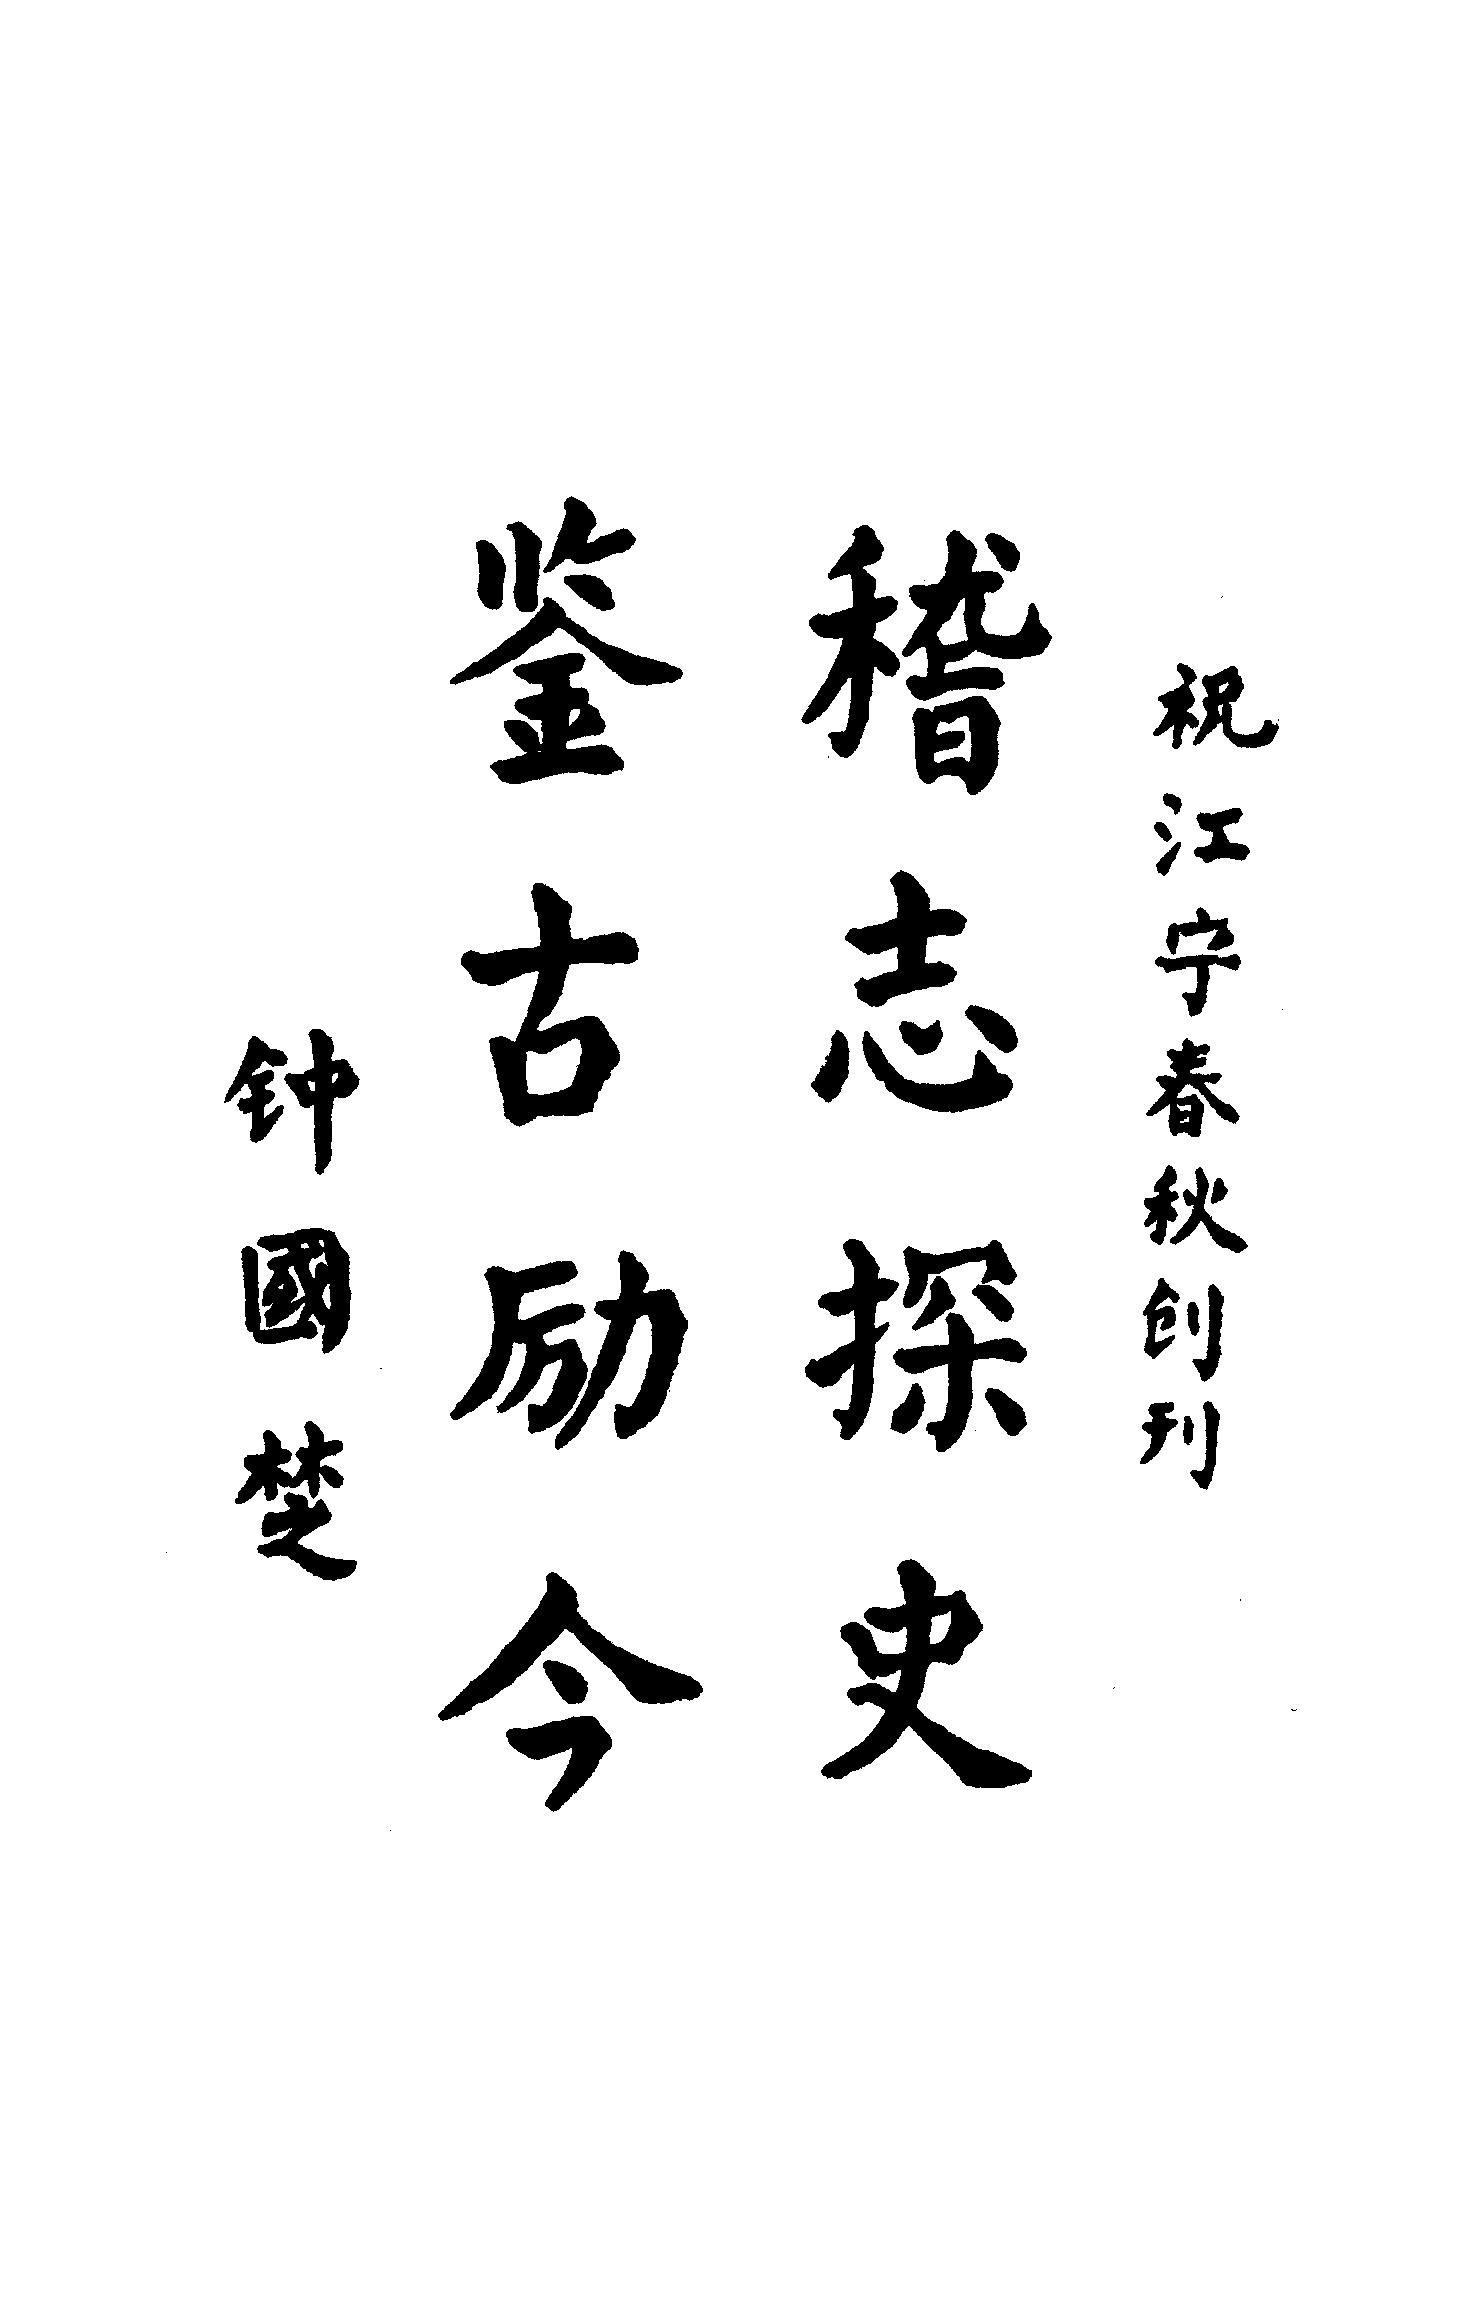 祝江宁春秋创刊
稽志探史
鉴古励今
钟國楚